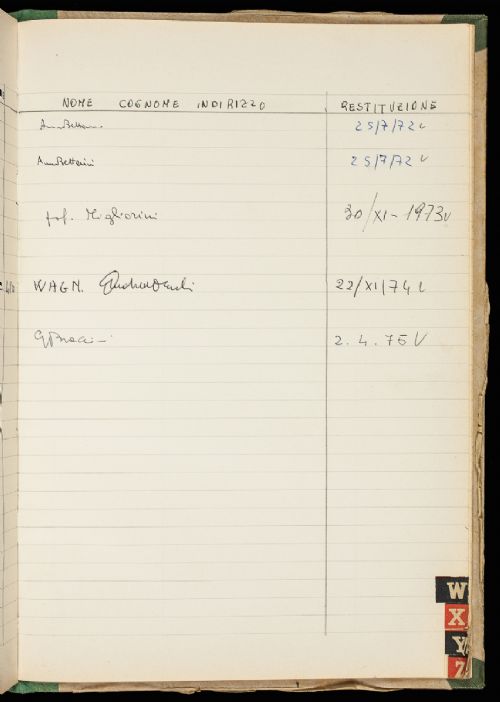 NOME COGNOME INDIRIZZO RESTITUZIONE
25/7/72 v
Anna Bettarini 25/7/72 v
prof. Migliorini 30/XI-1973 v
WAGN. 22/XI/74 v
2. 4. 75 V
W
X
Y
Z